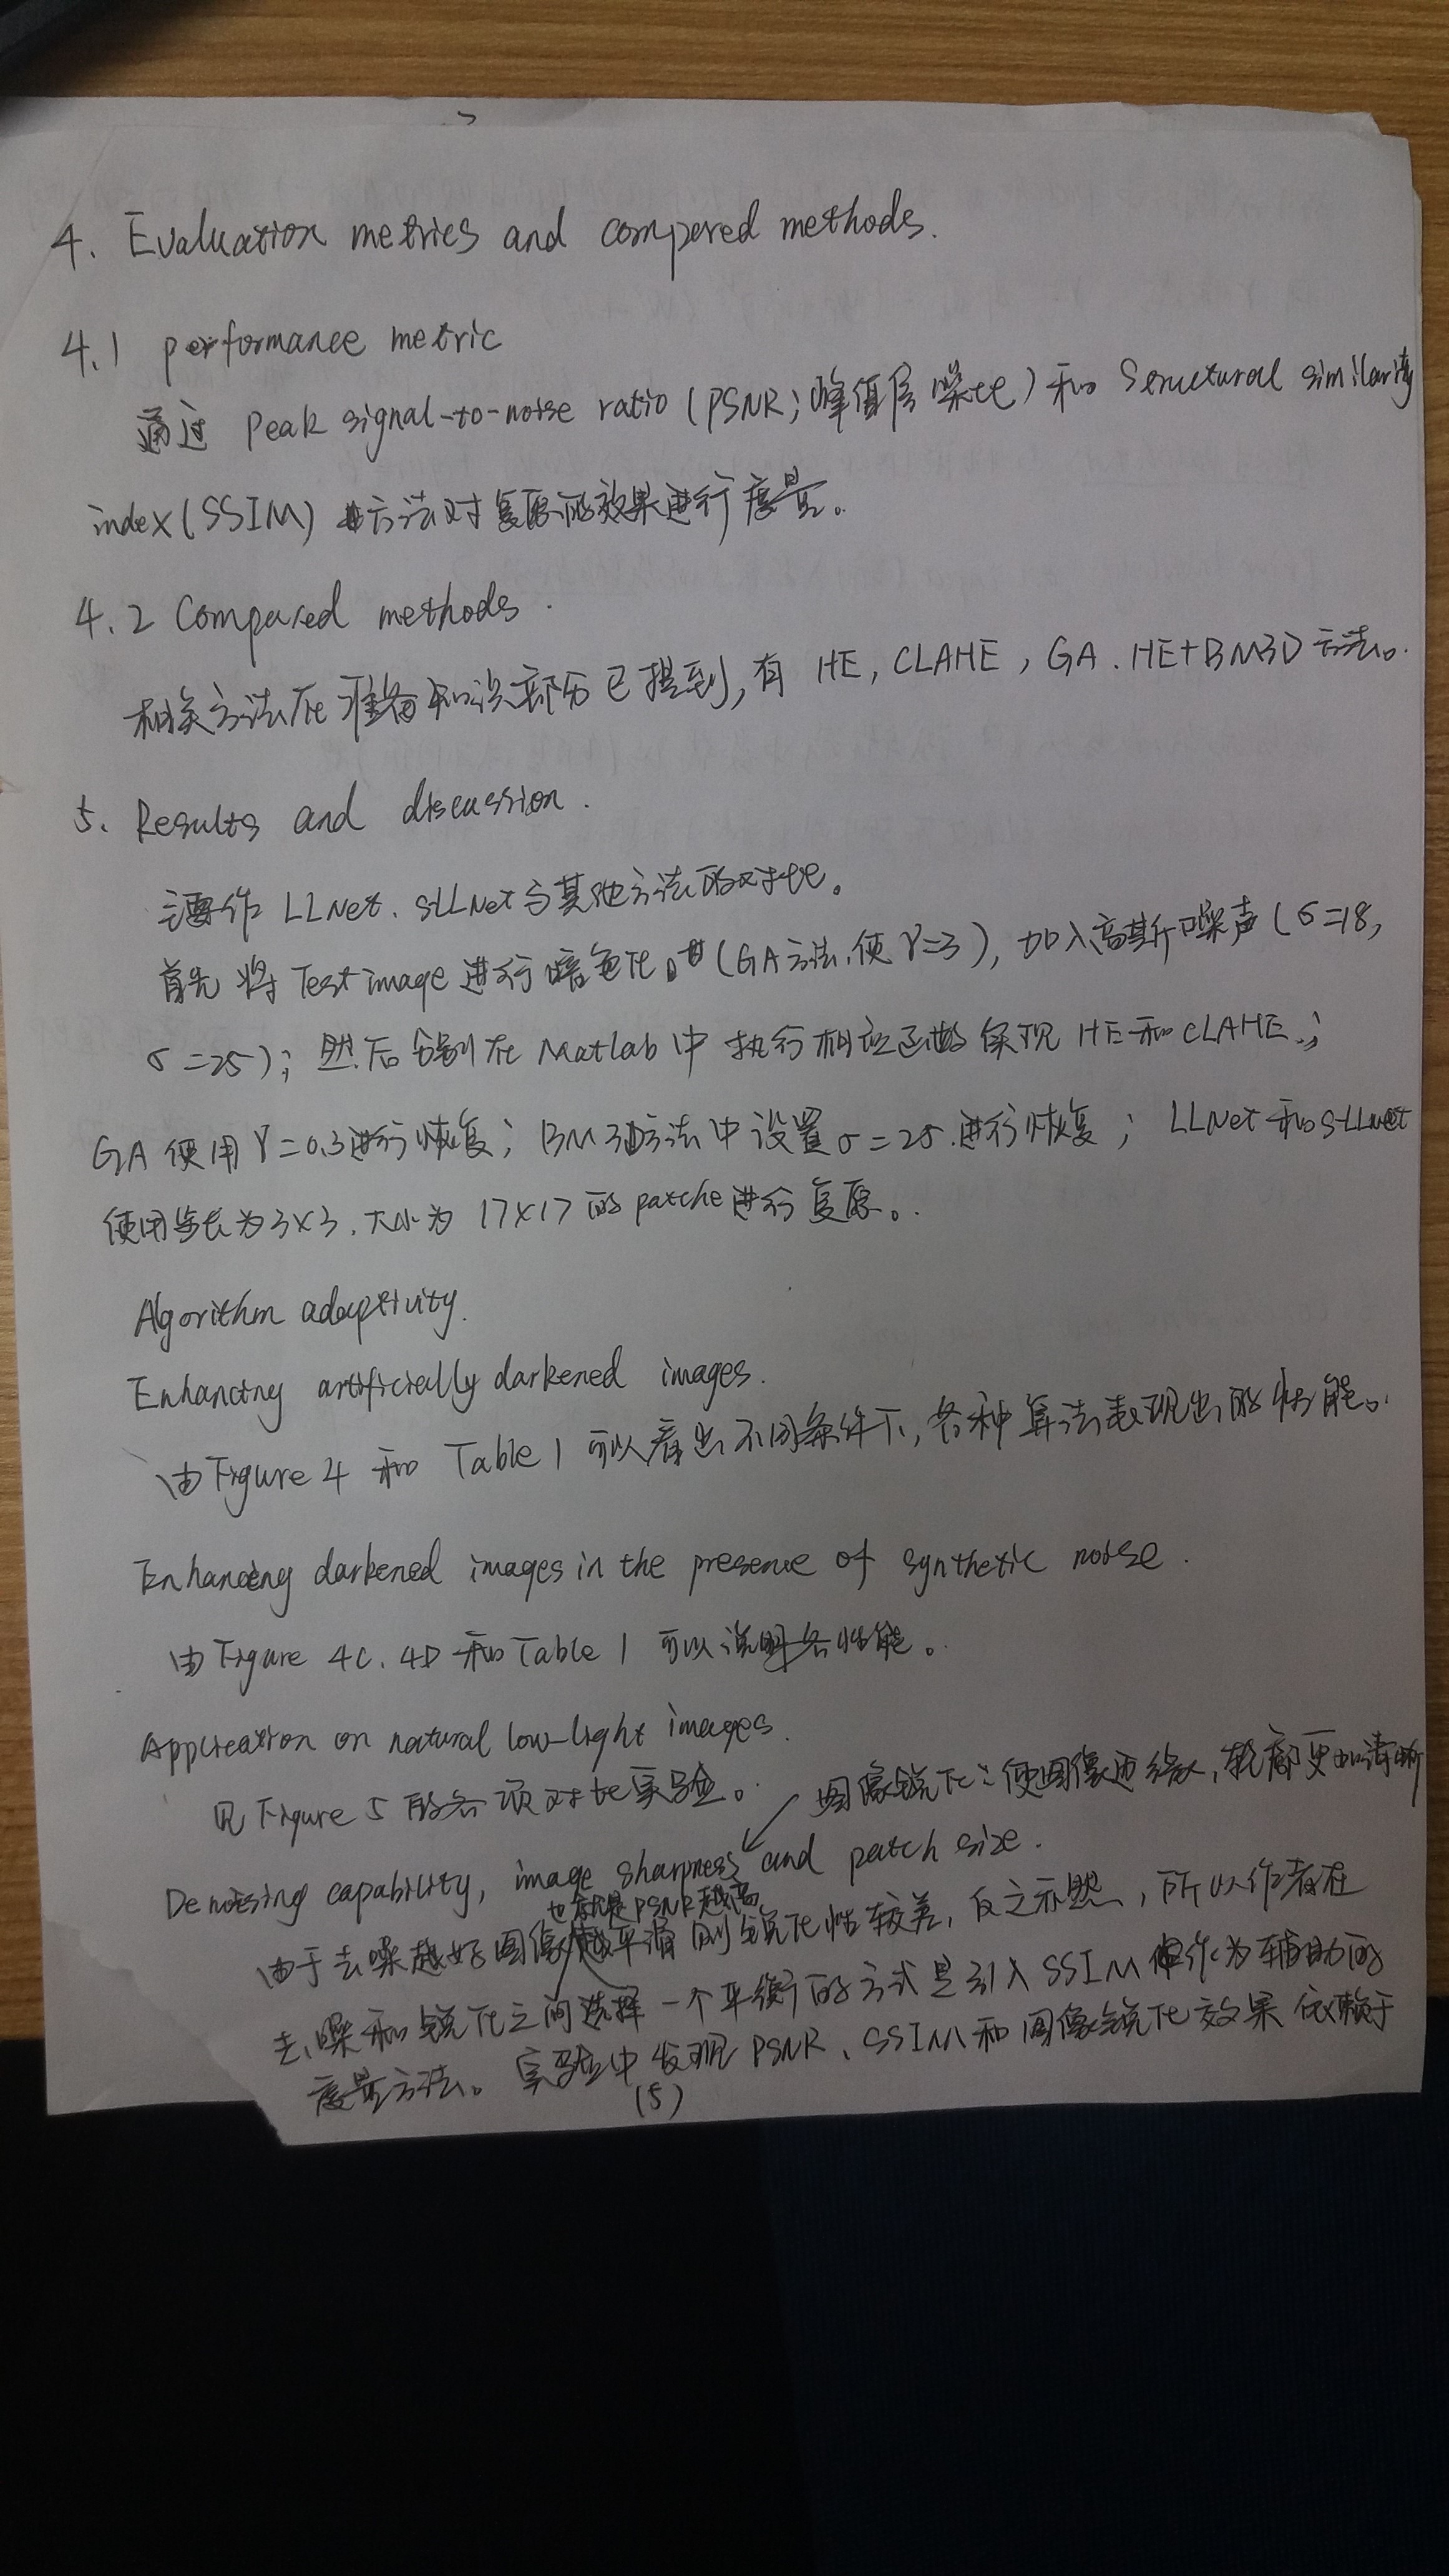 4. Evaluation metrics and compered methods.
4.1 performance metric
通过 Peak signal-to-noise ratio (PSNR; 峰值信噪比) 和 Structural similarity
index(SSIM) 方法对复原的效果进行度量。
4.2 Compared methods.
相关方法在准备知识部分已提到,有 HE, CLAHE, GA、HE+BM3D方法。
5. Results and discussion.
主要作 LLNet、SLLNet与其他方法的对比。
首先将 Test image 进行暗色化 (GA方法,使γ=3), 加入高斯噪声 (σ=18,
σ=25); 然后分别在 Matlab 中 执行相应函数实现 HE 和 CLAHE;
GA 使用 γ=0.3进行恢复; BM3D方法中设置 σ=25 进行恢复; LLNet 和 SLLNet
使用步长为3×3,大小为 17×17 的 patche 进行复原。
Algorithm adaptivity.
Enhancing artificially darkened images.
由 Figure 4 和 Table 1 可以看出不同条件下,各种算法表现出的性能。
Enhancing darkened images in the presence of synthetic noise.
由 Figure 4C、4D 和 Table 1 可以说明各性能。
Application on natural low-light images.
见 Figure 5 的各项对比实验。
图像锐化:使图像边缘,轮廓更加清晰
Denoising capability, image sharpness and patch size.
也就是PSNR越高
由于去噪越好图像越平滑则锐化性较差,反之亦然,所以作者在
去噪和锐化之间选择一个平衡的方式是引入 SSIM 作为辅助的
度量方法。实验中发现 PSNR、SSIM和图像锐化效果依赖于
(5)